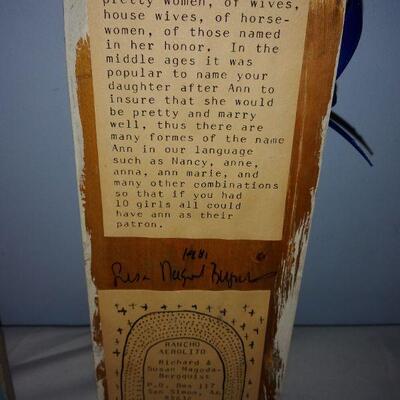 pretty women, of wives,
house wives, of horse-
women, of those named
in her honor. In the
middle ages it was
popular to name your
daughter after Ann to
insure that she would
be pretty and marry
well, thus there are
many formes of the name
Ann in our language
such as Nancy, anne,
anna, ann marie, and
many other combinations
so that if you had
10 girls all could
have ann as their
patron.
1981
RANCHO
AEROLITO
Richard &
Susan Magoda-
Bergquist
P.O. Box 117
San Simon, Az